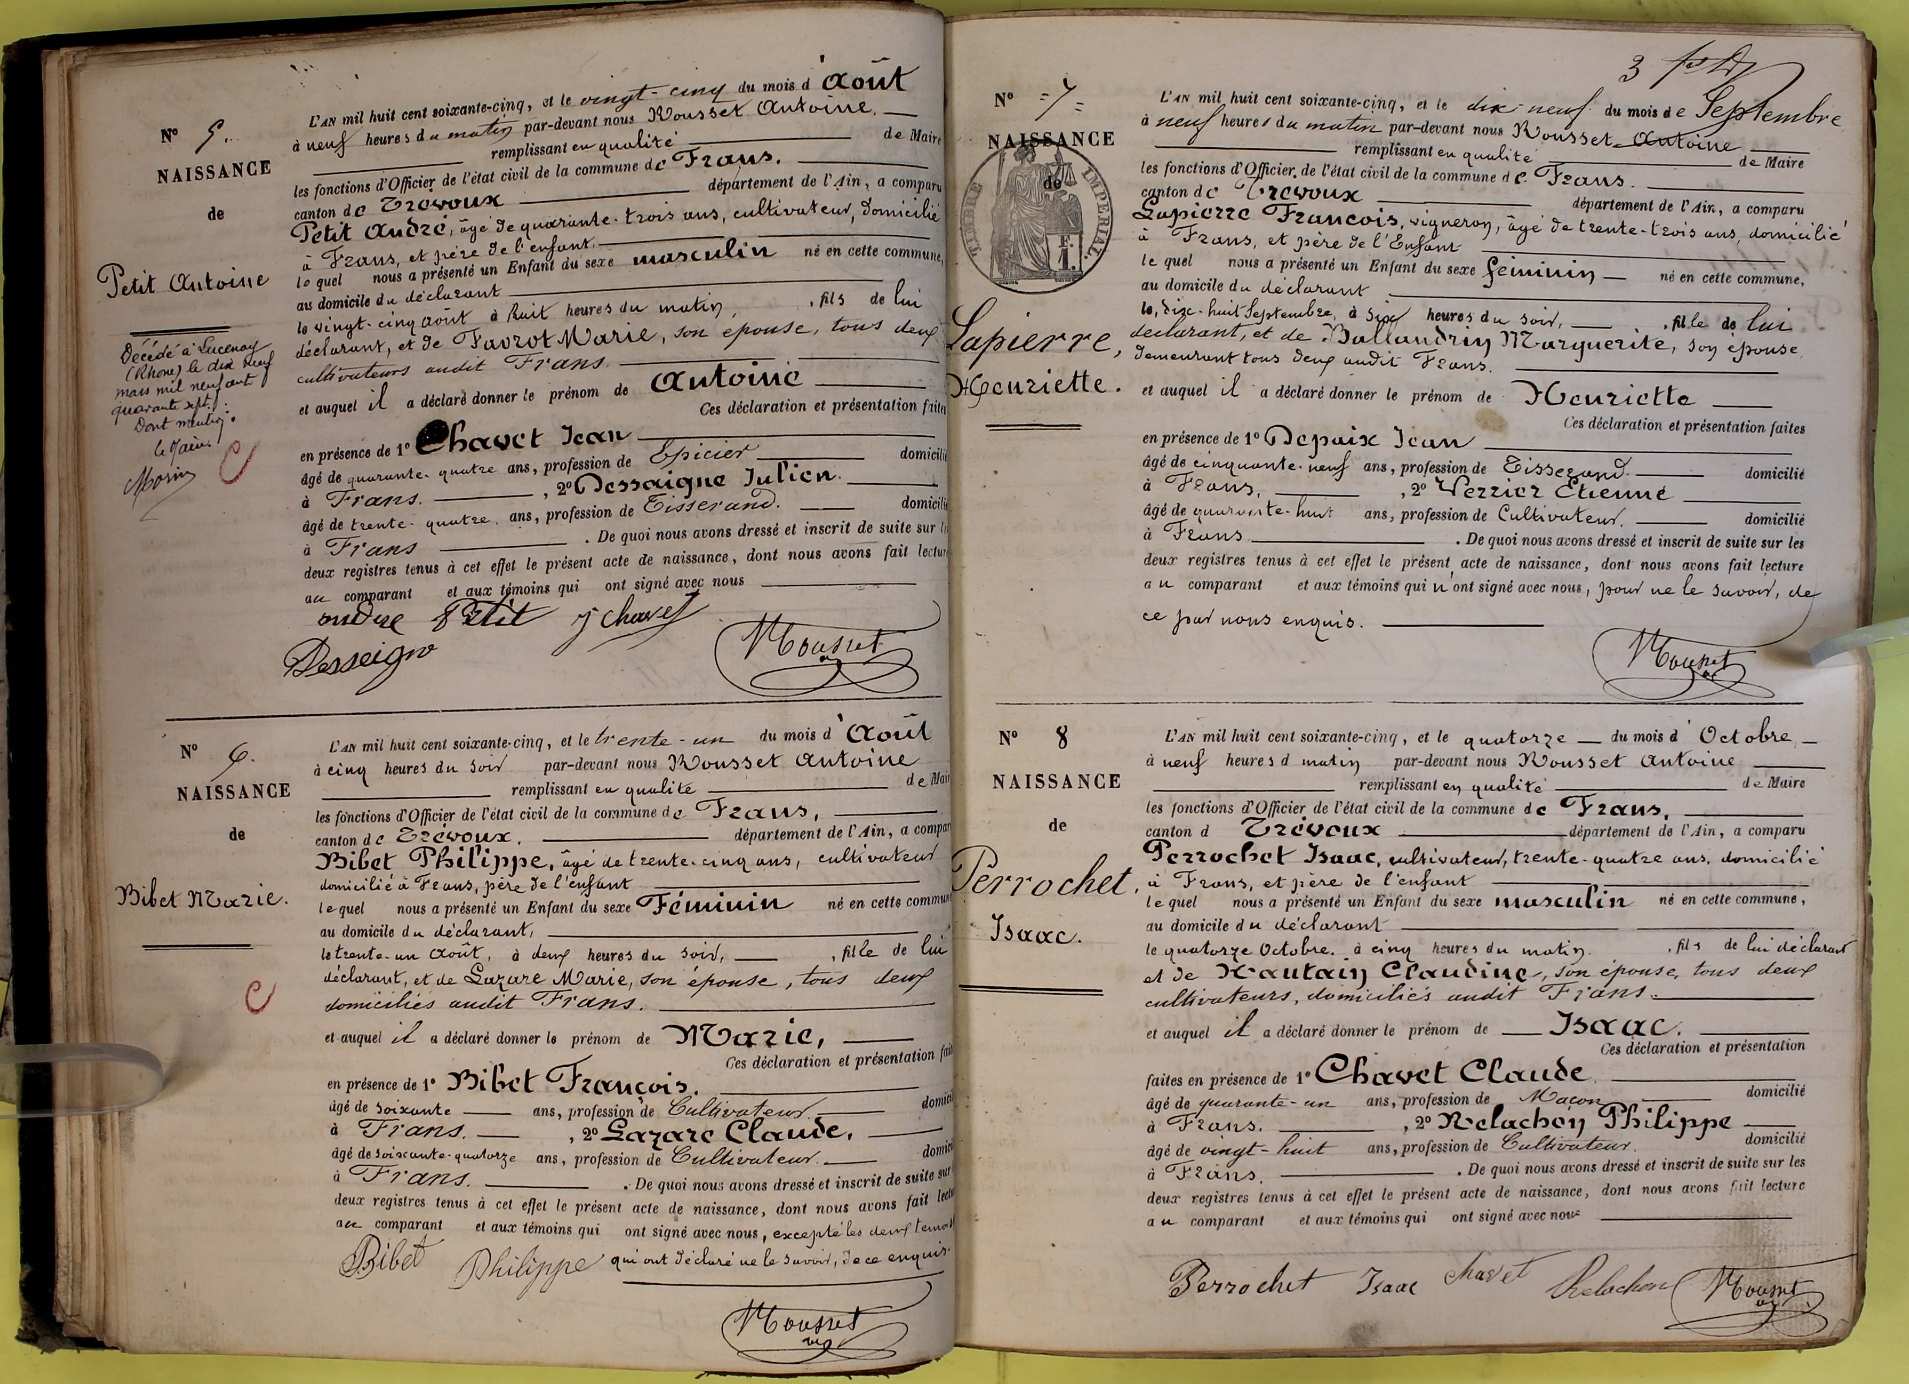 N° 5.
NAISSANCE
de
Petit Antoine
Décédé à Lucenay
(Rhône) le dix neuf
mars mil neuf cent
quarante sept.
Dont mention.
le Maire
Morin
C
L'AN mil huit cent soixante-cinq, et le vingt-cinq du mois d'Août
à neuf heures du matin par-devant nous Rousset Antoine.
remplissant en qualité de Maire
les fonctions d'Officier de l'état civil de la commune de Frans.
canton de Trévoux département de l'Ain, a comparu
Petit André, âgé de quarante-trois ans, cultivateur, domicilié
à Frans, et père de l'enfant.
lequel nous a présenté un Enfant du sexe masculin né en cette commune,
au domicile du déclarant
le vingt-cinq Août à huit heures du matin, fils de lui
déclarant, et de Favrot Marie, son épouse, tous deux
cultivateurs audit Frans.
et auquel il a déclaré donner le prénom de Antoine
Ces déclaration et présentation faites
en présence de 1° Chavet Jean
âgé de quarante-quatre ans, profession de Epicier domicilié
à Frans. , 2° Dessaigne Julien.
âgé de trente-quatre ans, profession de Tisserand. domicilié
à Frans . De quoi nous avons dressé et inscrit de suite sur les
deux registres tenus à cet effet le présent acte de naissance, dont nous avons fait lecture
au comparant et aux témoins qui ont signé avec nous
andre Petit J chavet
Desseigne Rousset
N° 6.
NAISSANCE
de
Bibet Marie.
C
L'AN mil huit cent soixante-cinq, et le trente-un du mois d'Août
à cinq heures du soir par-devant nous Rousset Antoine
remplissant en qualité de Maire
les fonctions d'Officier de l'état civil de la commune de Frans,
canton de Trévoux. département de l'Ain, a comparu
Bibet Philippe, âgé de trente-cinq ans, cultivateur
domicilié à Frans, père de l'enfant
lequel nous a présenté un Enfant du sexe Féminin né en cette commune
au domicile du déclarant,
le trente-un Août, à deux heures du soir, fille de lui
déclarant, et de Lazare Marie, son épouse, tous deux
domiciliés audit Frans.
et auquel il a déclaré donner le prénom de Marie,
Ces déclaration et présentation faites
en présence de 1° Bibet François.
âgé de soixante ans, profession de Cultivateur. domicilié
à Frans. , 2° Lazare Claude,
âgé de soixante-quatorze ans, profession de Cultivateur. domicilié
à Frans. . De quoi nous avons dressé et inscrit de suite sur
deux registres tenus à cet effet le présent acte de naissance, dont nous avons fait lecture
au comparant et aux témoins qui ont signé avec nous, excepté les deux temoins
Bibet Philippe qui ont déclaré ne le savoir, de ce enquis.
Rousset
3
N° 7
NAISSANCE
de
TIMBRE IMPERIAL
F.
1.
Lapierre,
Henriette.
L'AN mil huit cent soixante-cinq, et le dix-neuf du mois de Septembre
à neuf heures du matin par-devant nous Rousset Antoine
remplissant en qualité de Maire
les fonctions d'Officier de l'état civil de la commune de Frans.
canton de Trévoux département de l'Ain, a comparu
Lapierre François, vigneron, âgé de trente-trois ans, domicilié
à Frans, et père de l'Enfant
lequel nous a présenté un Enfant du sexe féminin né en cette commune,
au domicile du déclarant
le, dix-huit Septembre, à six heures du soir, fille de lui
declarant, et de Ballandrin Marguerite, son épouse,
demeurant tous deux audit Frans.
et auquel il a déclaré donner le prénom de Henriette
Ces déclaration et présentation faites
en présence de 1° Depaix Jean
âgé de cinquante-neuf ans, profession de Tisserand. domicilié
à Frans, , 2° Verrier Etienne
âgé de quarante-huit ans, profession de Cultivateur. domicilié
à Frans . De quoi nous avons dressé et inscrit de suite sur les
deux registres tenus à cet effet le présent acte de naissance, dont nous avons fait lecture
au comparant et aux témoins qui n'ont signé avec nous, pour ne le savoir, de
ce par nous enquis.
Rousset
N° 8
NAISSANCE
de
Perrochet,
Isaac.
L'AN mil huit cent soixante-cinq, et le quatorze du mois d'Octobre,
à neuf heures d matin par-devant nous Rousset Antoine
remplissant en qualité de Maire
les fonctions d'Officier de l'état civil de la commune de Frans,
canton d Trévoux département de l'Ain, a comparu
Perrochet Isaac, cultivateur, trente-quatre ans, domicilié
à Frans, et père de l'enfant
lequel nous a présenté un Enfant du sexe masculin né en cette commune,
au domicile du déclarant
le quatorze Octobre. à cinq heures du matin. , fils de lui déclarant
et de Nautain Claudine, son épouse, tous deux
cultivateurs, domiciliés audit Frans.
et auquel il a déclaré donner le prénom de Isaac.
Ces déclaration et présentation
faites en présence de 1° Chavet Claude
âgé de quarante-un ans, profession de Maçon domicilié
à Frans. , 2° Relachon Philippe
âgé de vingt-huit ans, profession de Cultivateur. domicilié
à Frans. . De quoi nous avons dressé et inscrit de suite sur les
deux registres tenus à cet effet le présent acte de naissance, dont nous avons fait lecture
au comparant et aux témoins qui ont signé avec nous
Perrochet Isaac chavet Relachon Rousset